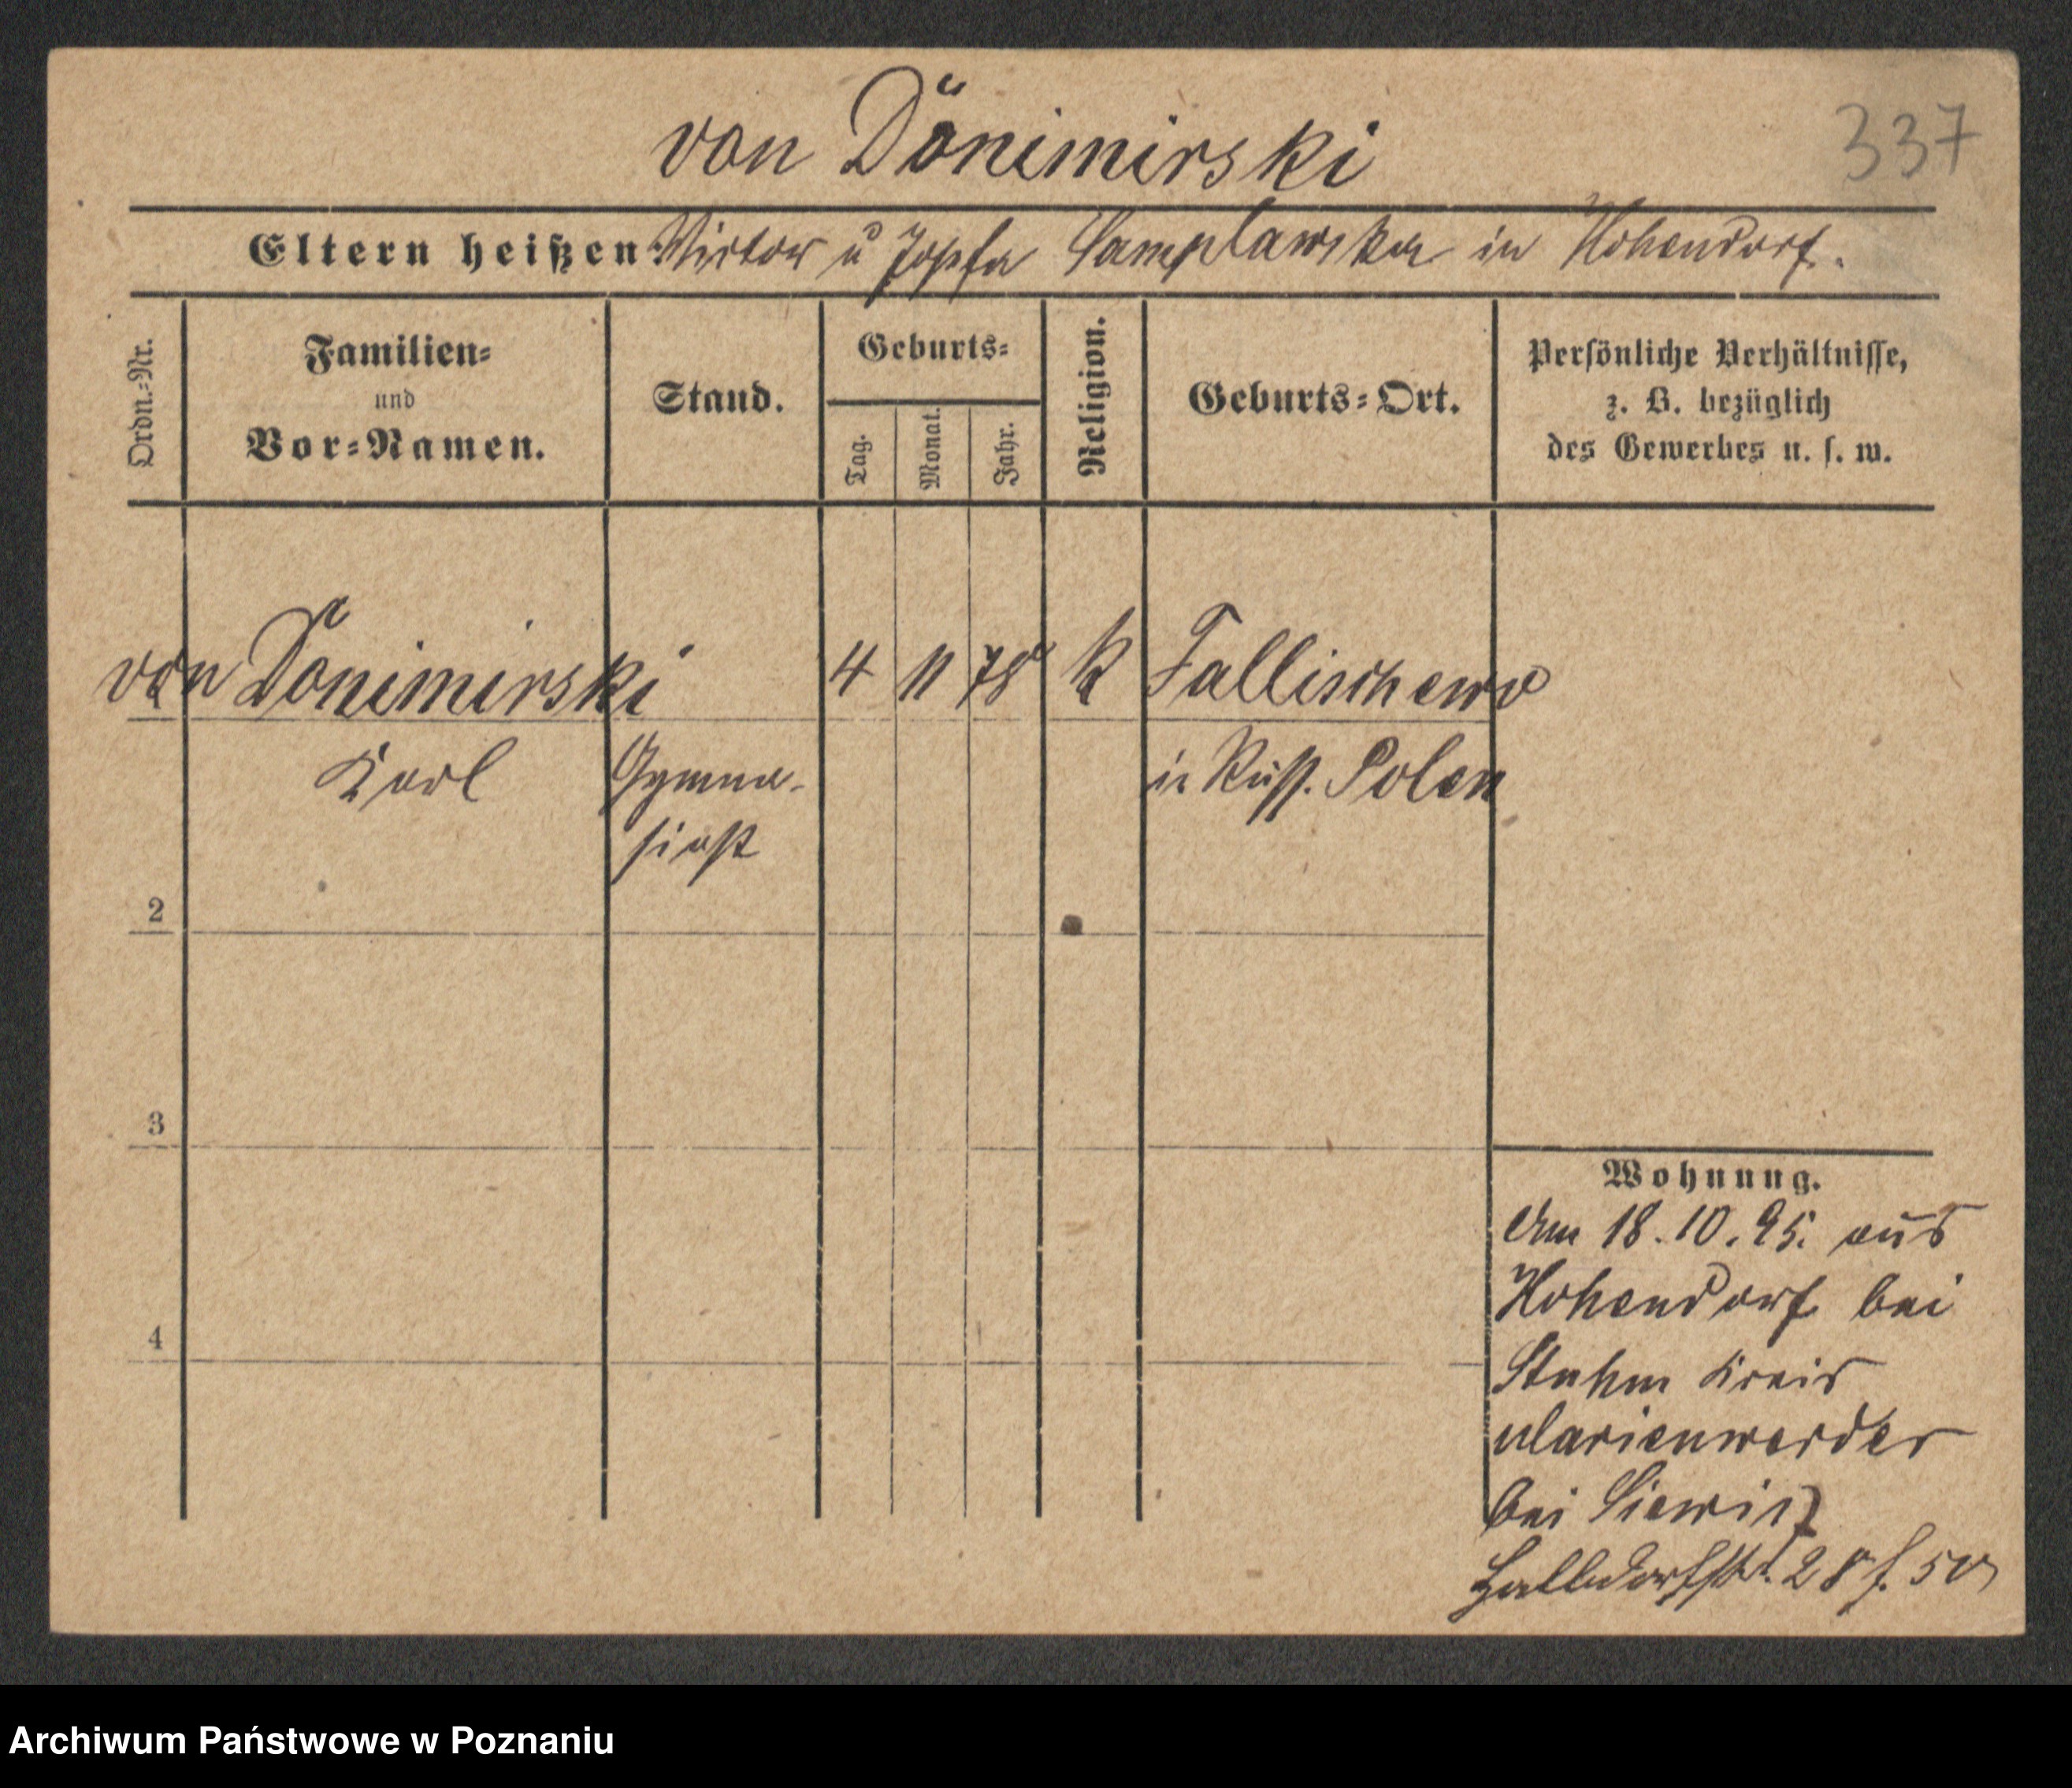 von Dönimirski
337
Eltern heißen: Victor u Zopfa Samplawska in Hohendorf.
Ordn.-Nr.
Familien-
und
Vor-Namen.
Stand.
Geburts-
Tag.
Monat.
Jahr.
Religion.
Geburts-Ort.
Persönliche Verhältnisse,
z. B. bezüglich
des Gewerbes u. s. w.
von Dönimirski 4 11 78 k Fallischewo
Karl Gymna- in Russ. Polen
siast
2
3
4
Wohnung.
Am 18.10.95. aus
Hohendorf bei
Stuhm Kreis
Marienwerder
bei Siewicz
28 f. 50
Archiwum Państwowe w Poznaniu